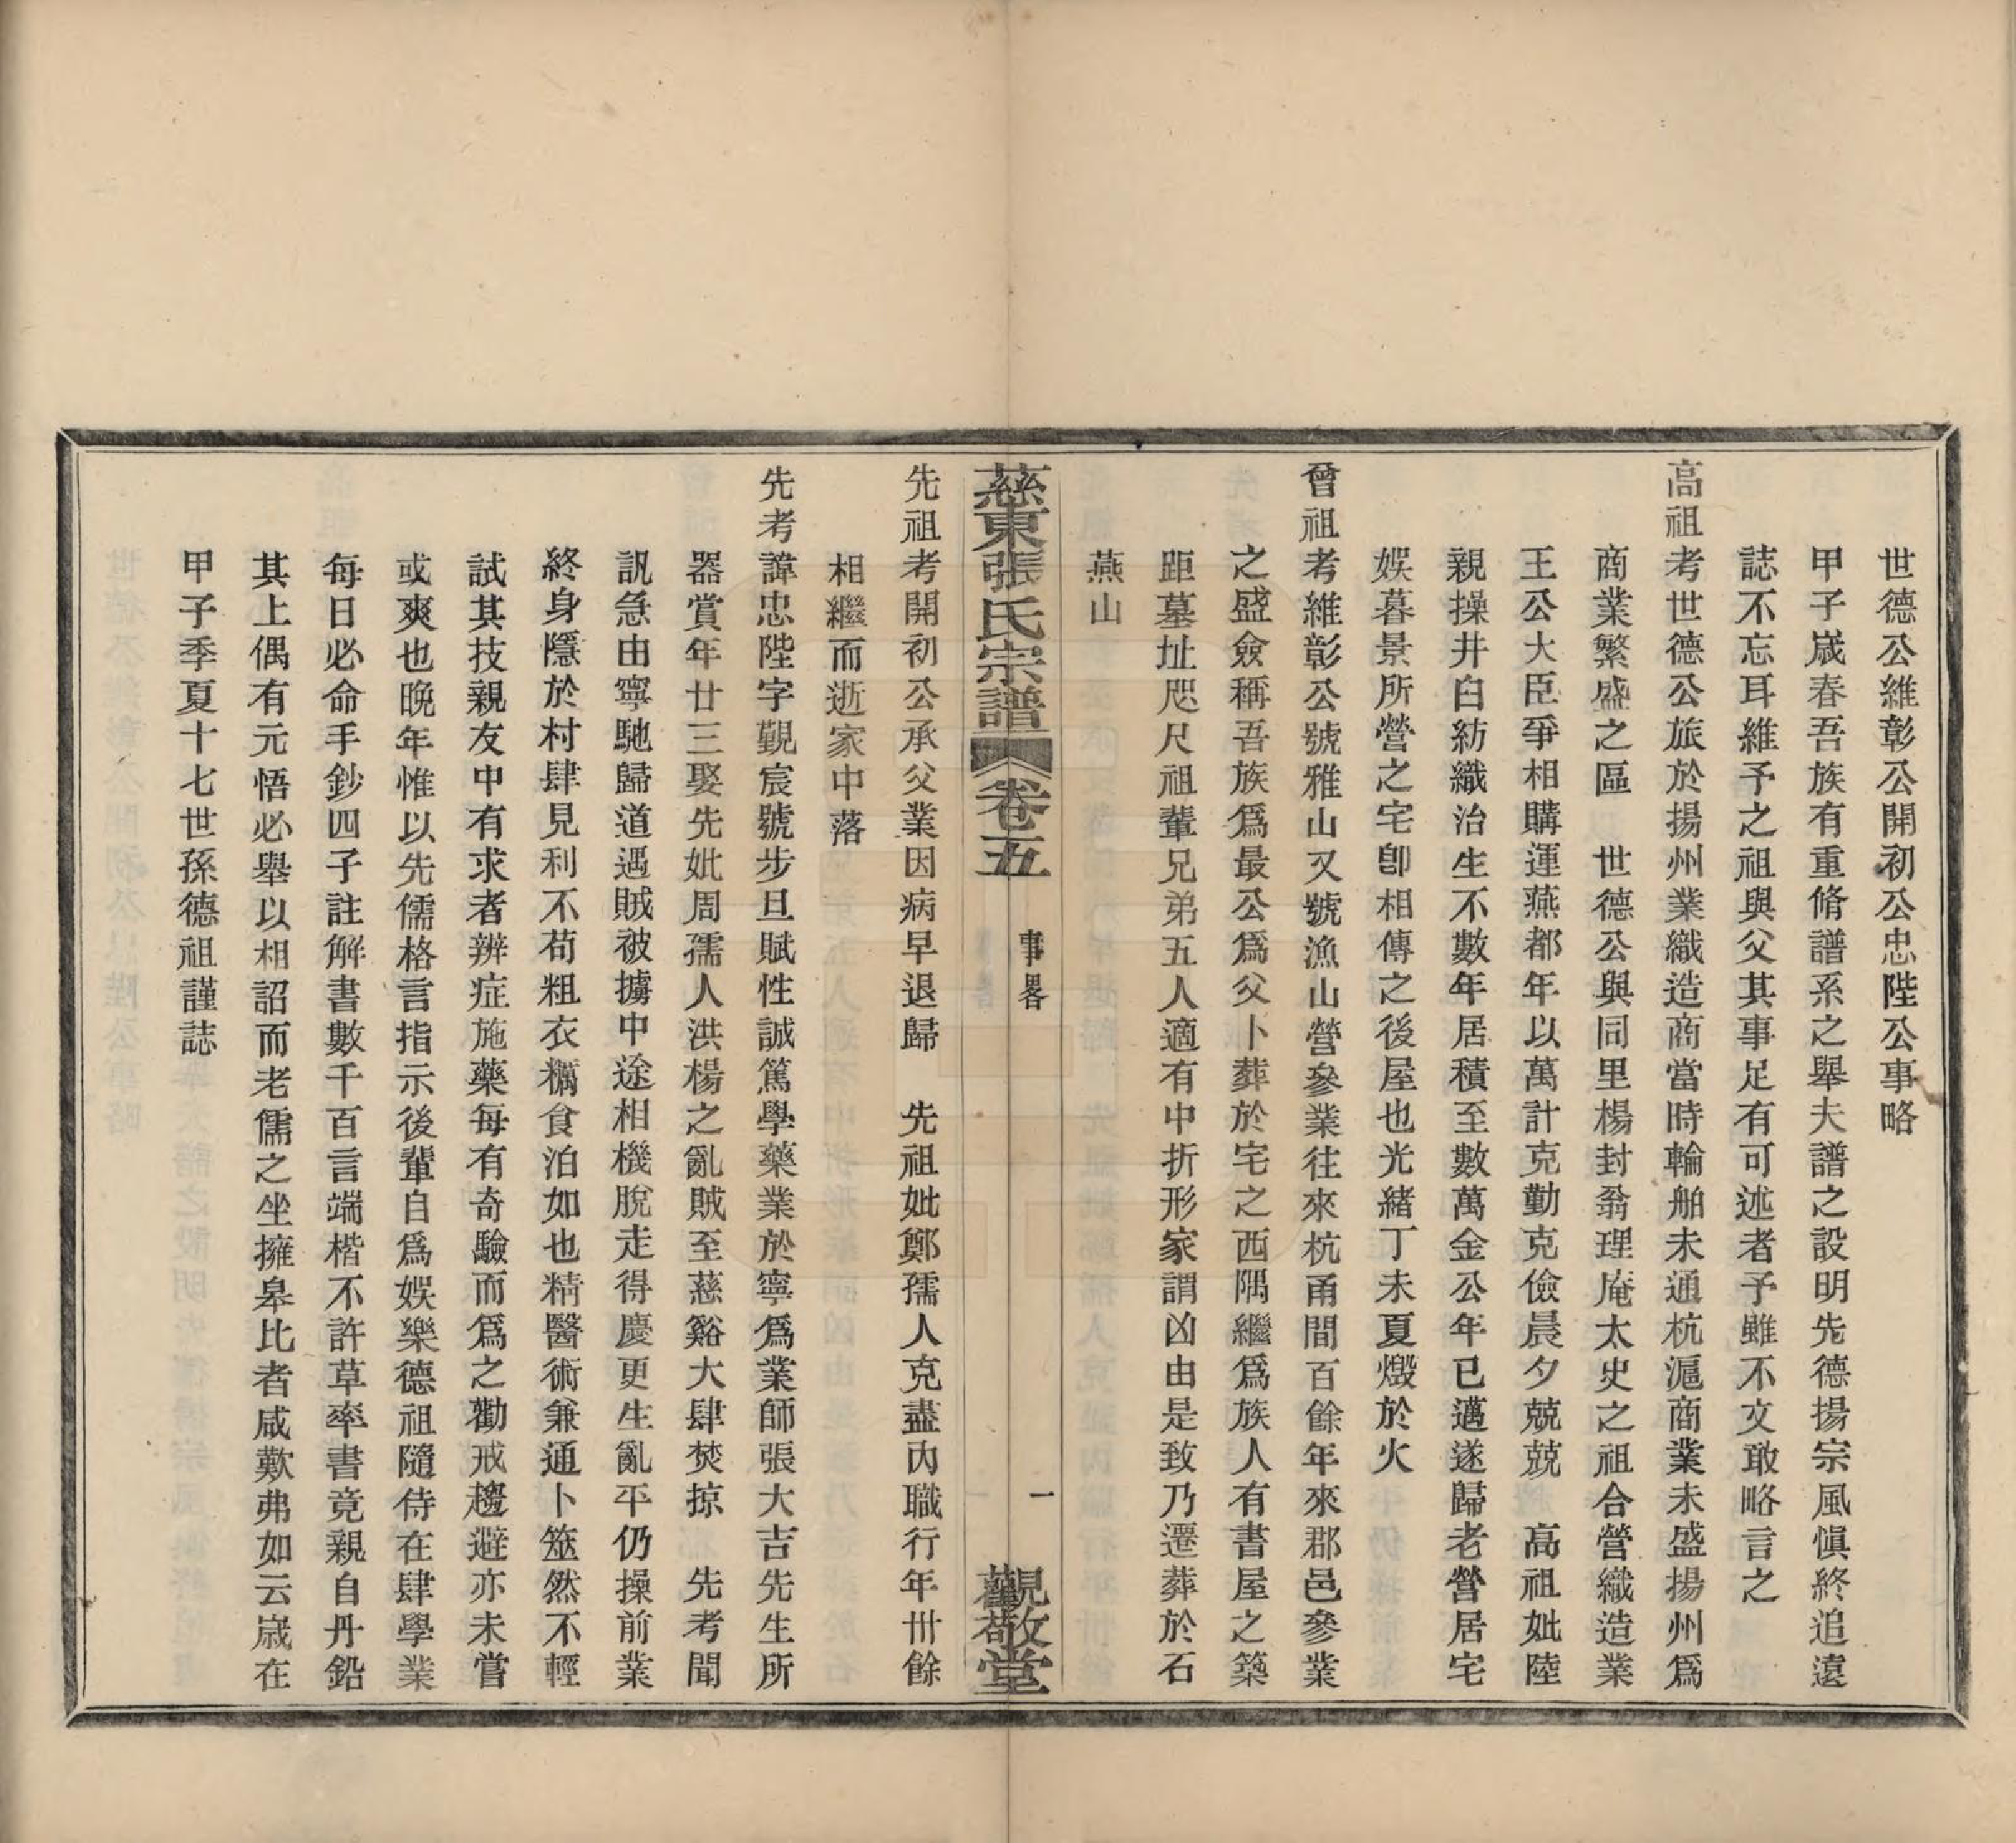 世德公維彰公開初公忠陛公事略
甲子嵗春吾族有重脩譜系之舉夫譜之設明先德揚宗風愼終追遠
誌不忘耳維予之祖與父其事足有可述者予雖不文敢略言之
高祖考世德公旅於揚州業織造商當時輪舶未通杭滬商業未盛揚州爲
商業繁盛之區　世德公與同里楊封翁理庵太史之祖合營織造業
王公大臣爭相購運燕都年以萬計克勤克儉晨夕兢兢　高祖妣陸
親操井臼紡織治生不數年居積至數萬金公年已邁遂歸老營居宅
娛暮景所營之宅卽相傳之後屋也光緒丁未夏燬於火
曾祖考維彰公號雅山又號漁山營參業往來杭甬間百餘年來郡邑參業
之盛僉稱吾族爲最公爲父卜葬於宅之西隅繼爲族人有書屋之築
距墓址咫尺祖輩兄弟五人適有中折形家謂凶由是致乃遷葬於石
燕山
慈東張氏宗譜　卷五　事畧　一　觀敬堂
先祖考開初公承父業因病早退歸　先祖妣鄭孺人克盡內職行年卅餘
相繼而逝家中落
先考諱忠陛字覲宸號步旦賦性誠篤學藥業於寧爲業師張大吉先生所
器賞年廿三娶先妣周孺人洪楊之亂賊至慈谿大肆焚掠　先考聞
訊急由寧馳歸道遇賊被擄中途相機脫走得慶更生亂平仍操前業
終身隱於村肆見利不苟粗衣糲食泊如也精醫術兼通卜筮然不輕
試其技親友中有求者辨症施藥每有奇驗而爲之勸戒趨避亦未嘗
或爽也晚年惟以先儒格言指示後輩自爲娛樂德祖隨侍在肆學業
每日必命手鈔四子註解書數千百言端楷不許草率書竟親自丹鉛
其上偶有元悟必舉以相詔而老儒之坐擁皋比者咸歎弗如云嵗在
甲子季夏十七世孫德祖謹誌